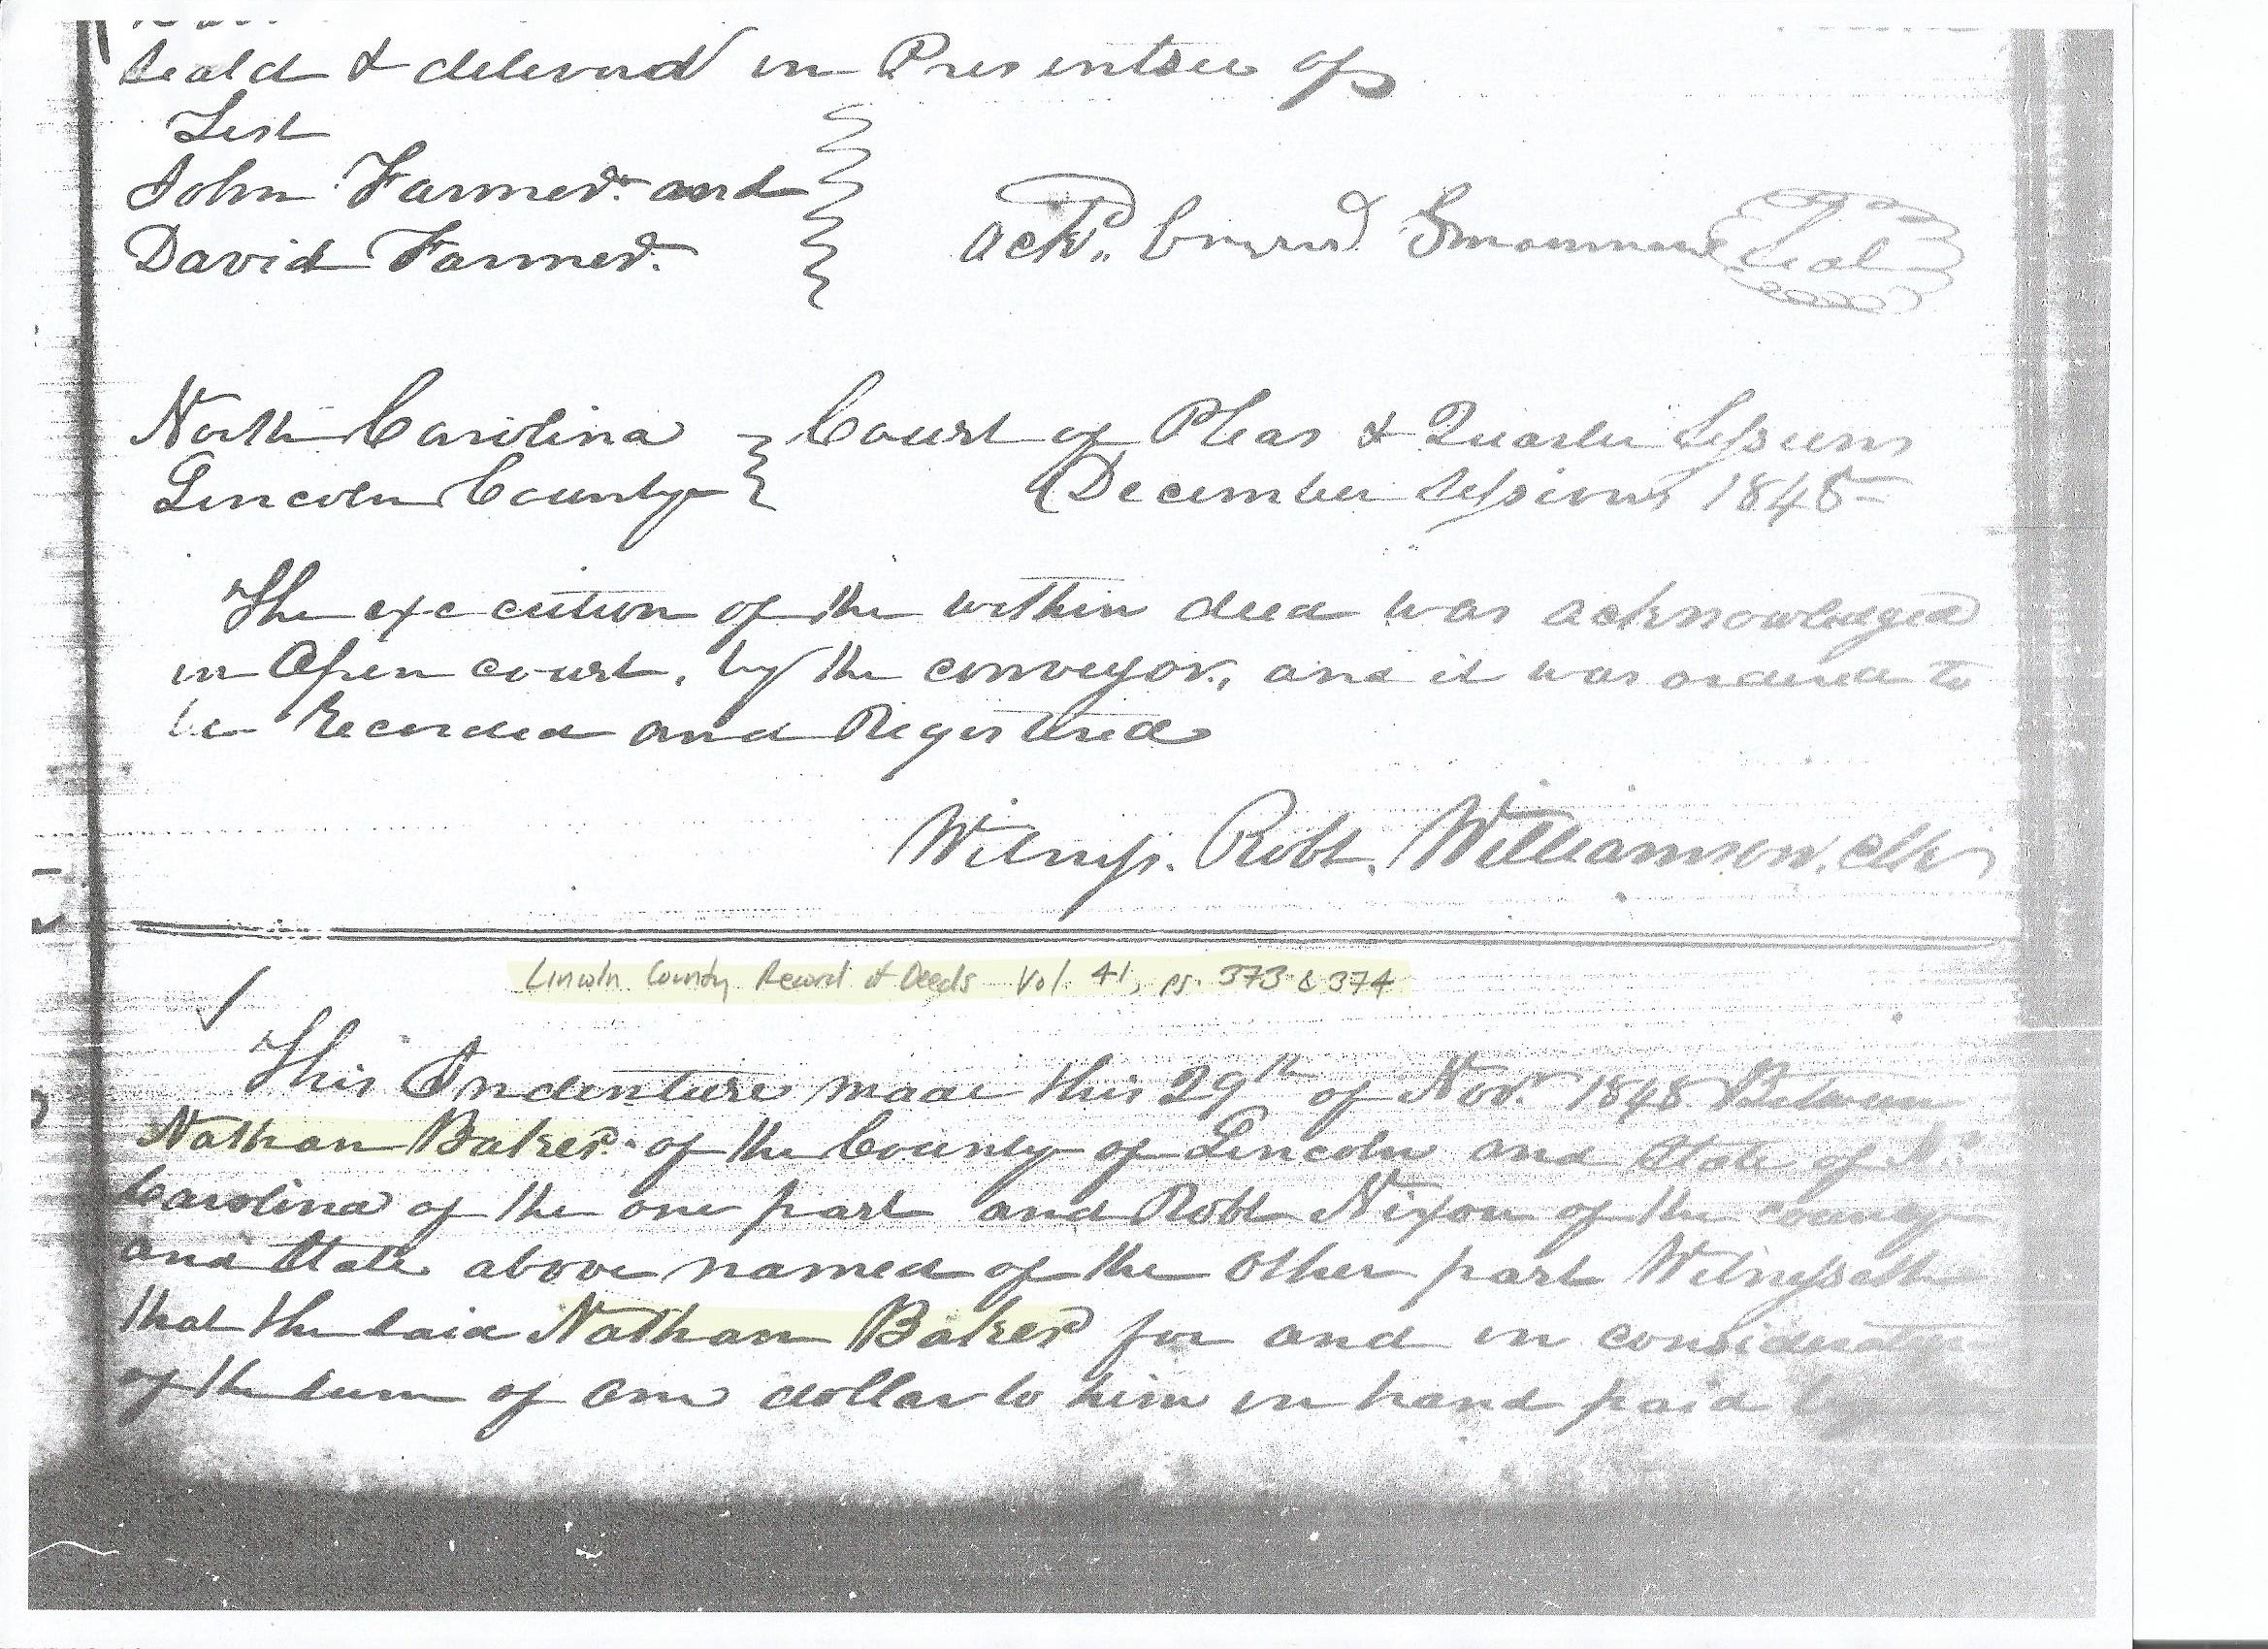 Seald & deleverd in Presentsee of
Test
John Farmer. and
David Farmer.
ackd. Seal
North Carolina Court of Pleas & Quarter Sessions
Lincoln County December Sessions 1845
The execution of the within deed was acknowledged
in Open court, by the conveyor, and it was ordered to
be Recorded and Registered
Witness. Robt. Williamson, Clk
Lincoln County Record of Deeds Vol. 41, ps. 373 & 374
This Indenture made this 29th of Novr. 1848 Between
Nathan Baker of the County of Lincoln and State of No
Carolina of the one part and Robt Nixon of the county
and State above named of the other part Witnesseth
that the said Nathan Baker for and in consideration
of the sum of one dollar to him in hand paid by